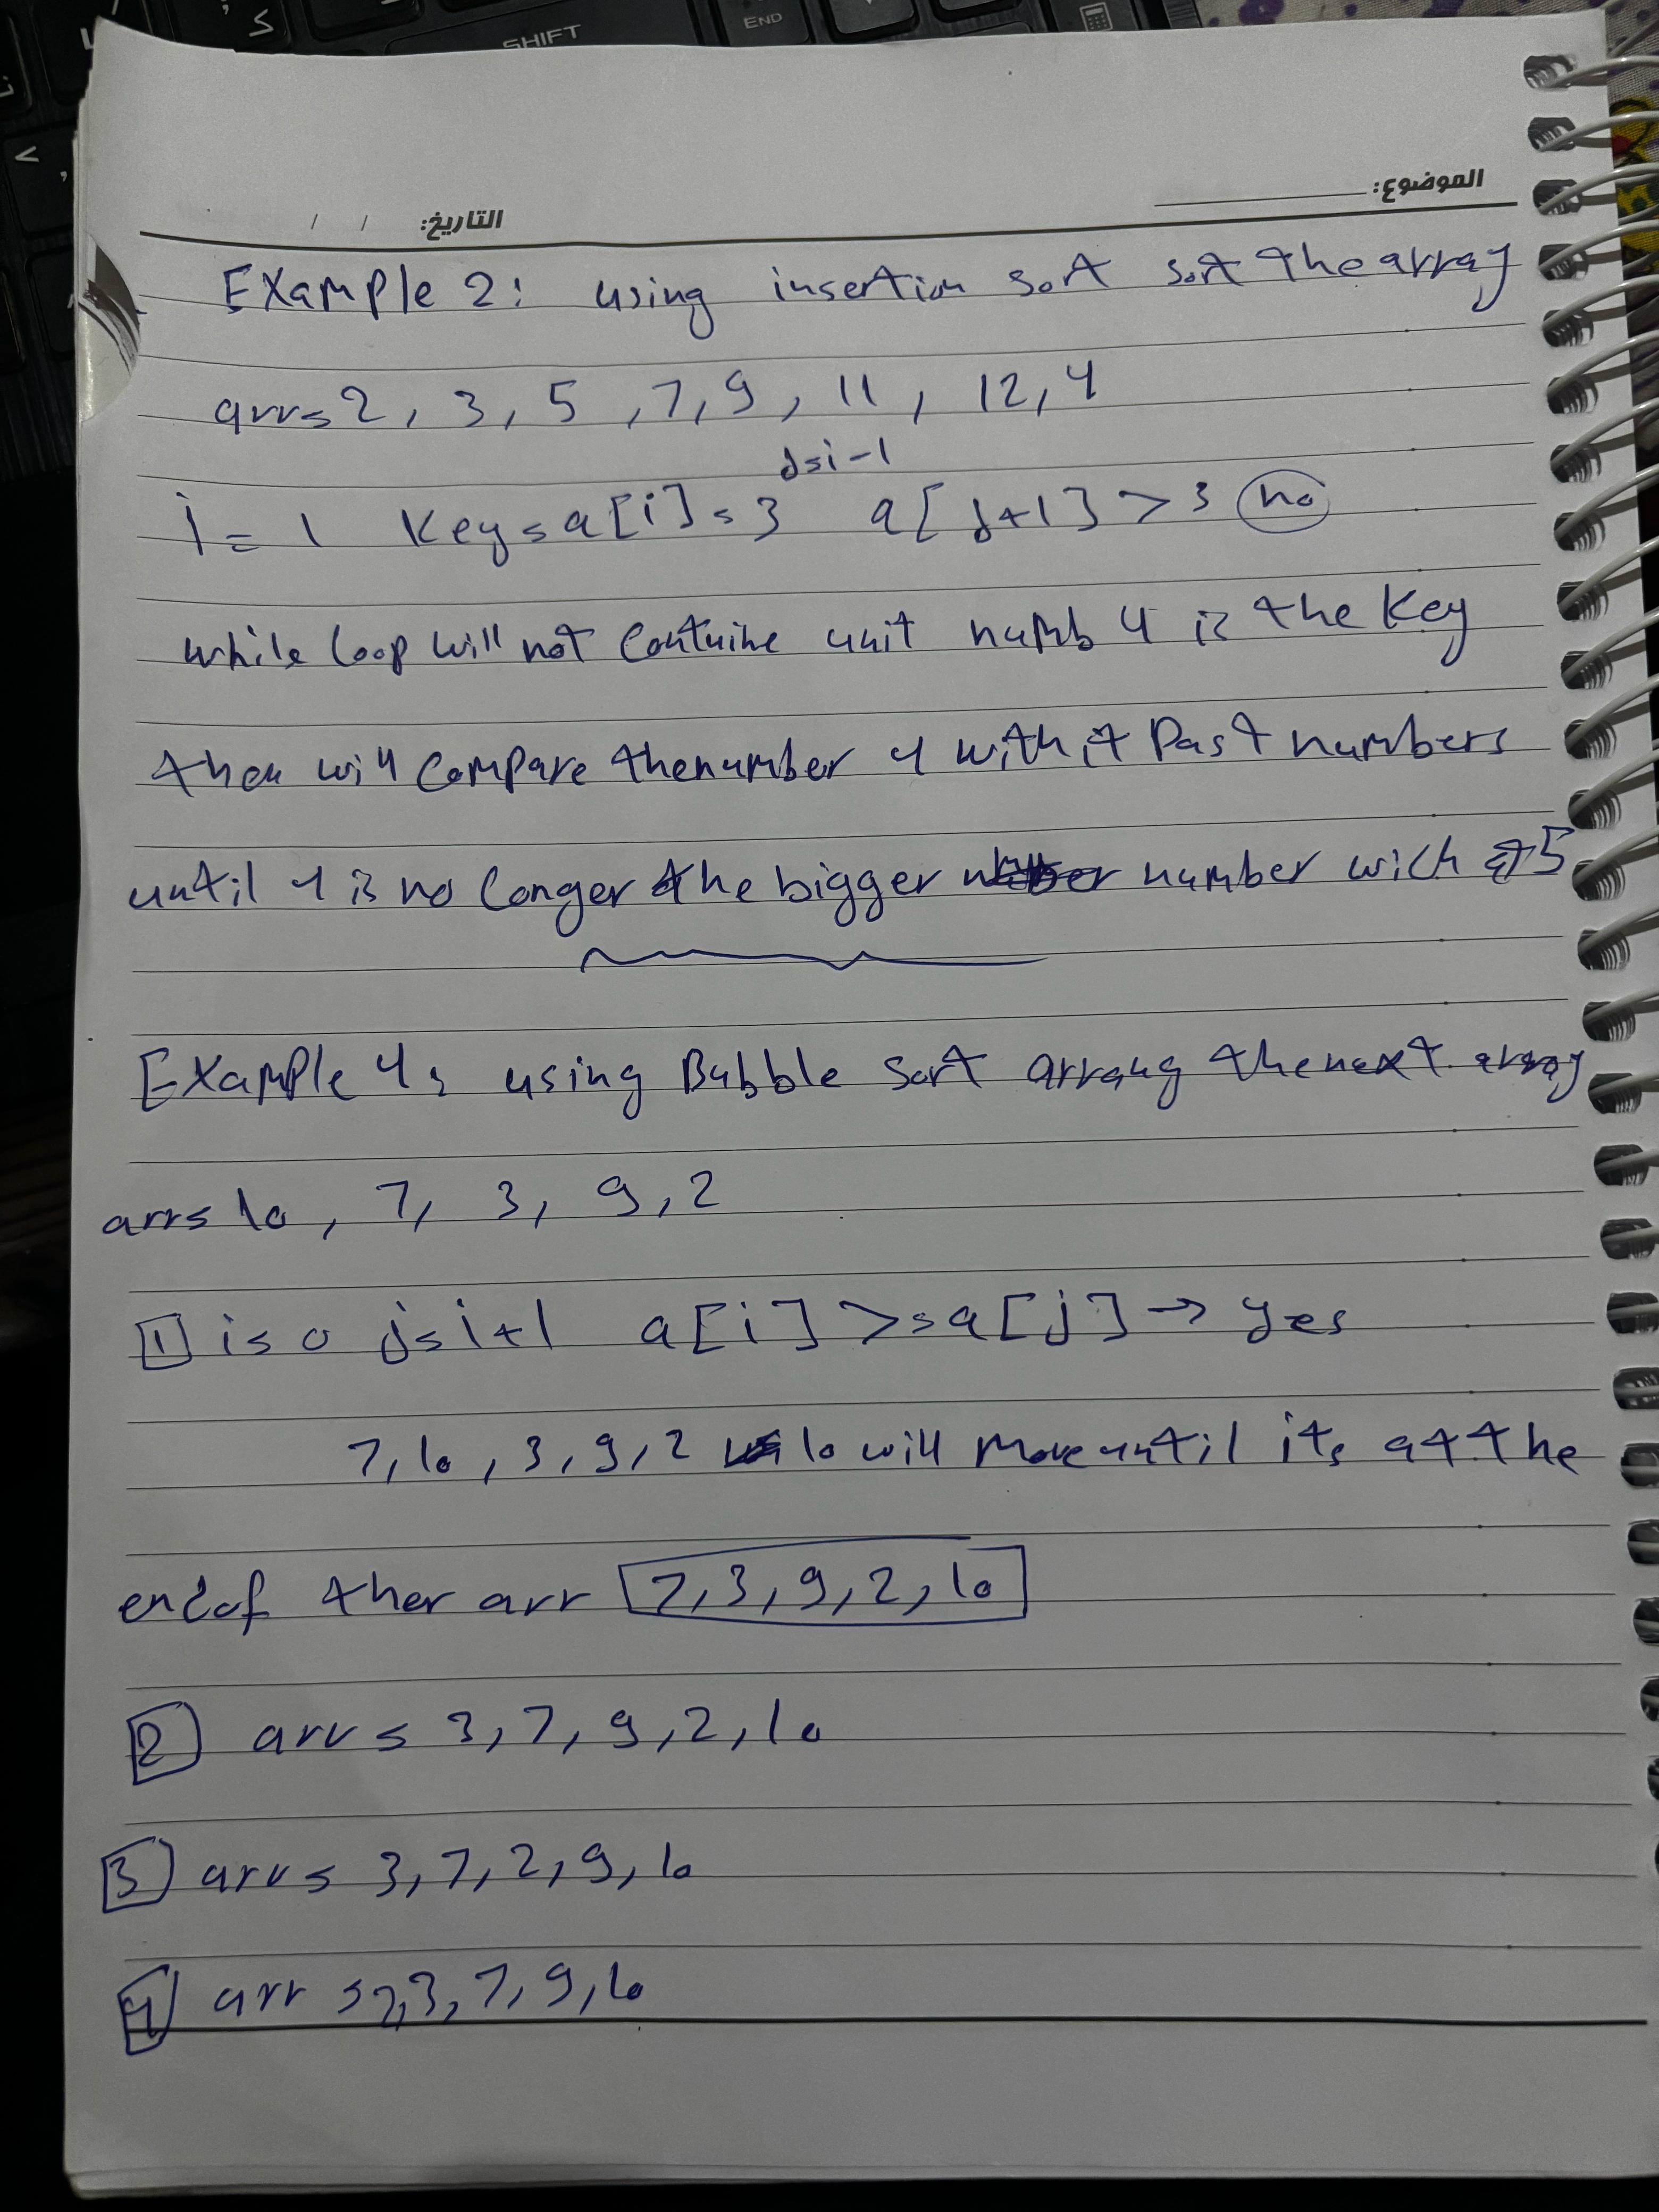 SHIFT
END
الموضوع:
التاريخ: / /
Example 2: using insertion sort sort the array
arr= 2, 3, 5, 7, 9, 11, 12, 4
j=i-1
i = 1 Key=a[i]=3 a[j+1] > 3 no
while loop will not contuine unit numb 4 is the key
then will compare the number 4 with it past numbers
until 4 is no longer the bigger number wich
Example 4: using Bubble sort arrang the next array
arr= 10, 7, 3, 9, 2
1 i=0 j=i+1 a[i] >= a[j] → yes
7, 10, 3, 9, 2 10 will move until its at the
end of ther arr 7, 3, 9, 2, 10
2 arr= 3, 7, 9, 2, 10
3 arr= 3, 7, 2, 9, 10
4 arr =2,3, 7, 9, 10